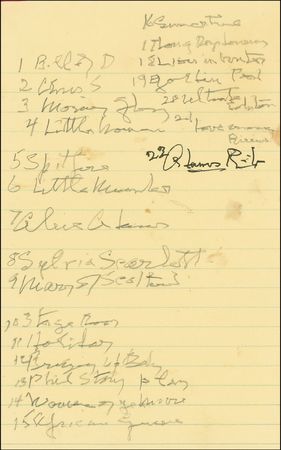 16 Summertime
17 Long Day Journey
1 Bill of D
18 Lion in Winter
2 Chris S
19 Golden Pond
3 Morning Glory
20 Ultimate Solution
4 Little Women
21 Love among Ruins
5 Spitfire
22 Adams Rib
6 Little Minister
7 Alice Adams
8 Sylvia Scarlett
9 Mary of Scotland
10 Stage Door
11 Holiday
12 Bringing Up Baby
13 Phil Story play
14 Woman of year
15 African Queen